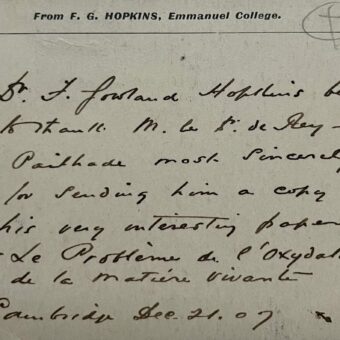 From F. G. HOPKINS, Emmanuel College.
Dr. F. Gowland Hopkins be
to thank M. le Dr. de Rey-
Pailhade most sincerel
for sending him a copy
his very interesting paper
"Le Problème de l'Oxydat
de la Matière vivante
Cambridge Dec. 21. 07